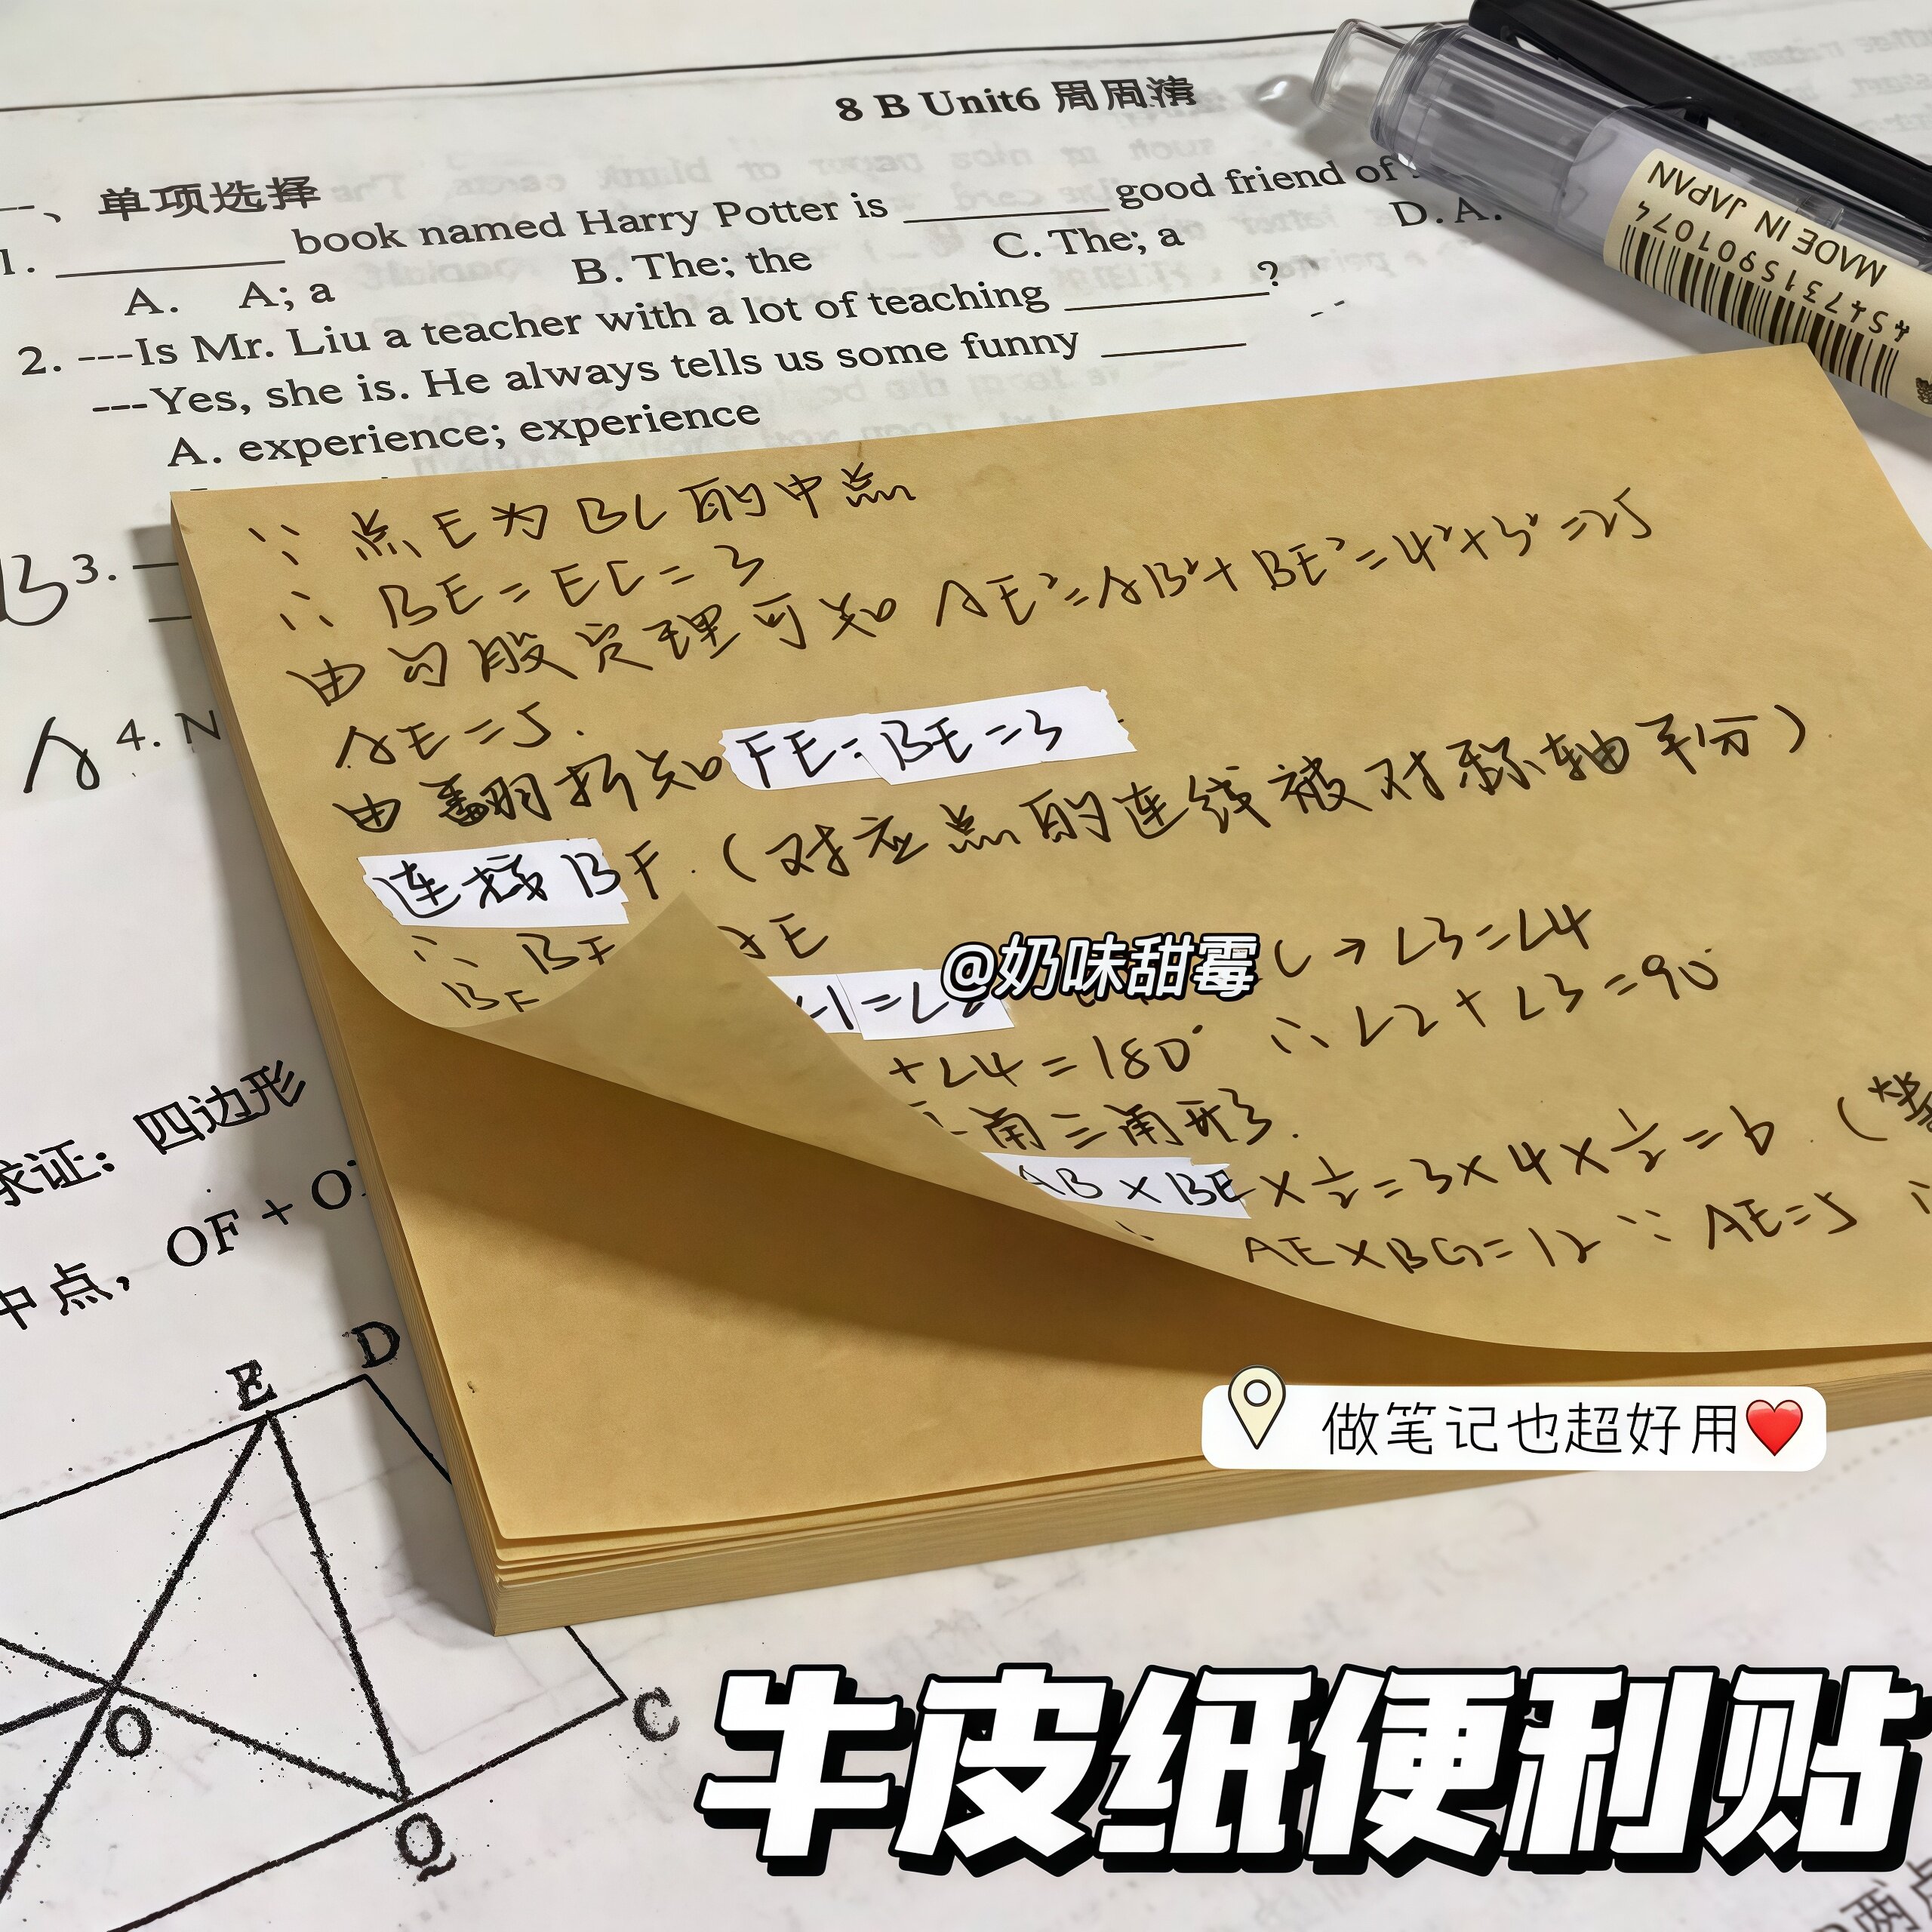 8 B Unit6 周周清
一、单项选择
1. ________ book named Harry Potter is ________ good friend of
A. A; a B. The; the C. The; a D. A.
2. ---Is Mr. Liu a teacher with a lot of teaching ________?
---Yes, she is. He always tells us some funny ______
A. experience; experience
B 3.
A 4. N
MADE IN JAPAN
∵ 点E为BC的中点
∴ BE=EC=3
由勾股定理可知 AE²=AB²+BE²=4²+3²=25
AE=5.
由翻折知 FE=BE=3
连接BF.(对应点的连线被对称轴平分)
∴ BF AE
BF ∠1=∠2 C→∠3=∠4
+∠4=180° ∴∠2+∠3=90°
角三角形.
AB×BE×½=3×4×½=6.(等
AE×BG=12 ∵ AE=5 ∴
@奶味甜霉
求证: 四边形
中点, OF + O
E
D
O
C
Q
做笔记也超好用❤️
牛皮纸便利贴
两点